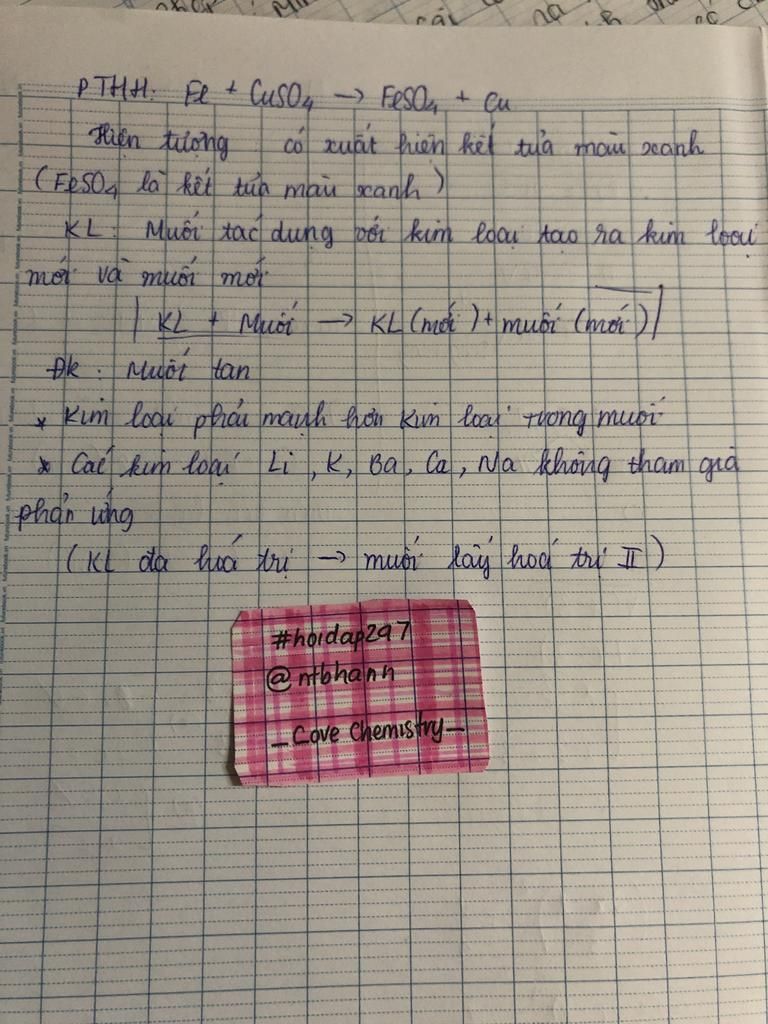 PTHH: Fe + CuSO4 → FeSO4 + Cu
Hiện tượng: có xuất hiện kết tủa màu xanh
(FeSO4 là kết tủa màu xanh)
KL: Muối tác dụng với kim loại tạo ra kim loại
mới và muối mới
| KL + Muối → KL (mới) + muối (mới) |
Đk: Muối tan
* Kim loại phải mạnh hơn kim loại trong muối
* Các kim loại Li, K, Ba, Ca, Na không tham gia
phản ứng
(KL đa hoá trị → muối lấy hoá trị II)
#hoidap247
@ntbhanh
_Cove Chemistry_